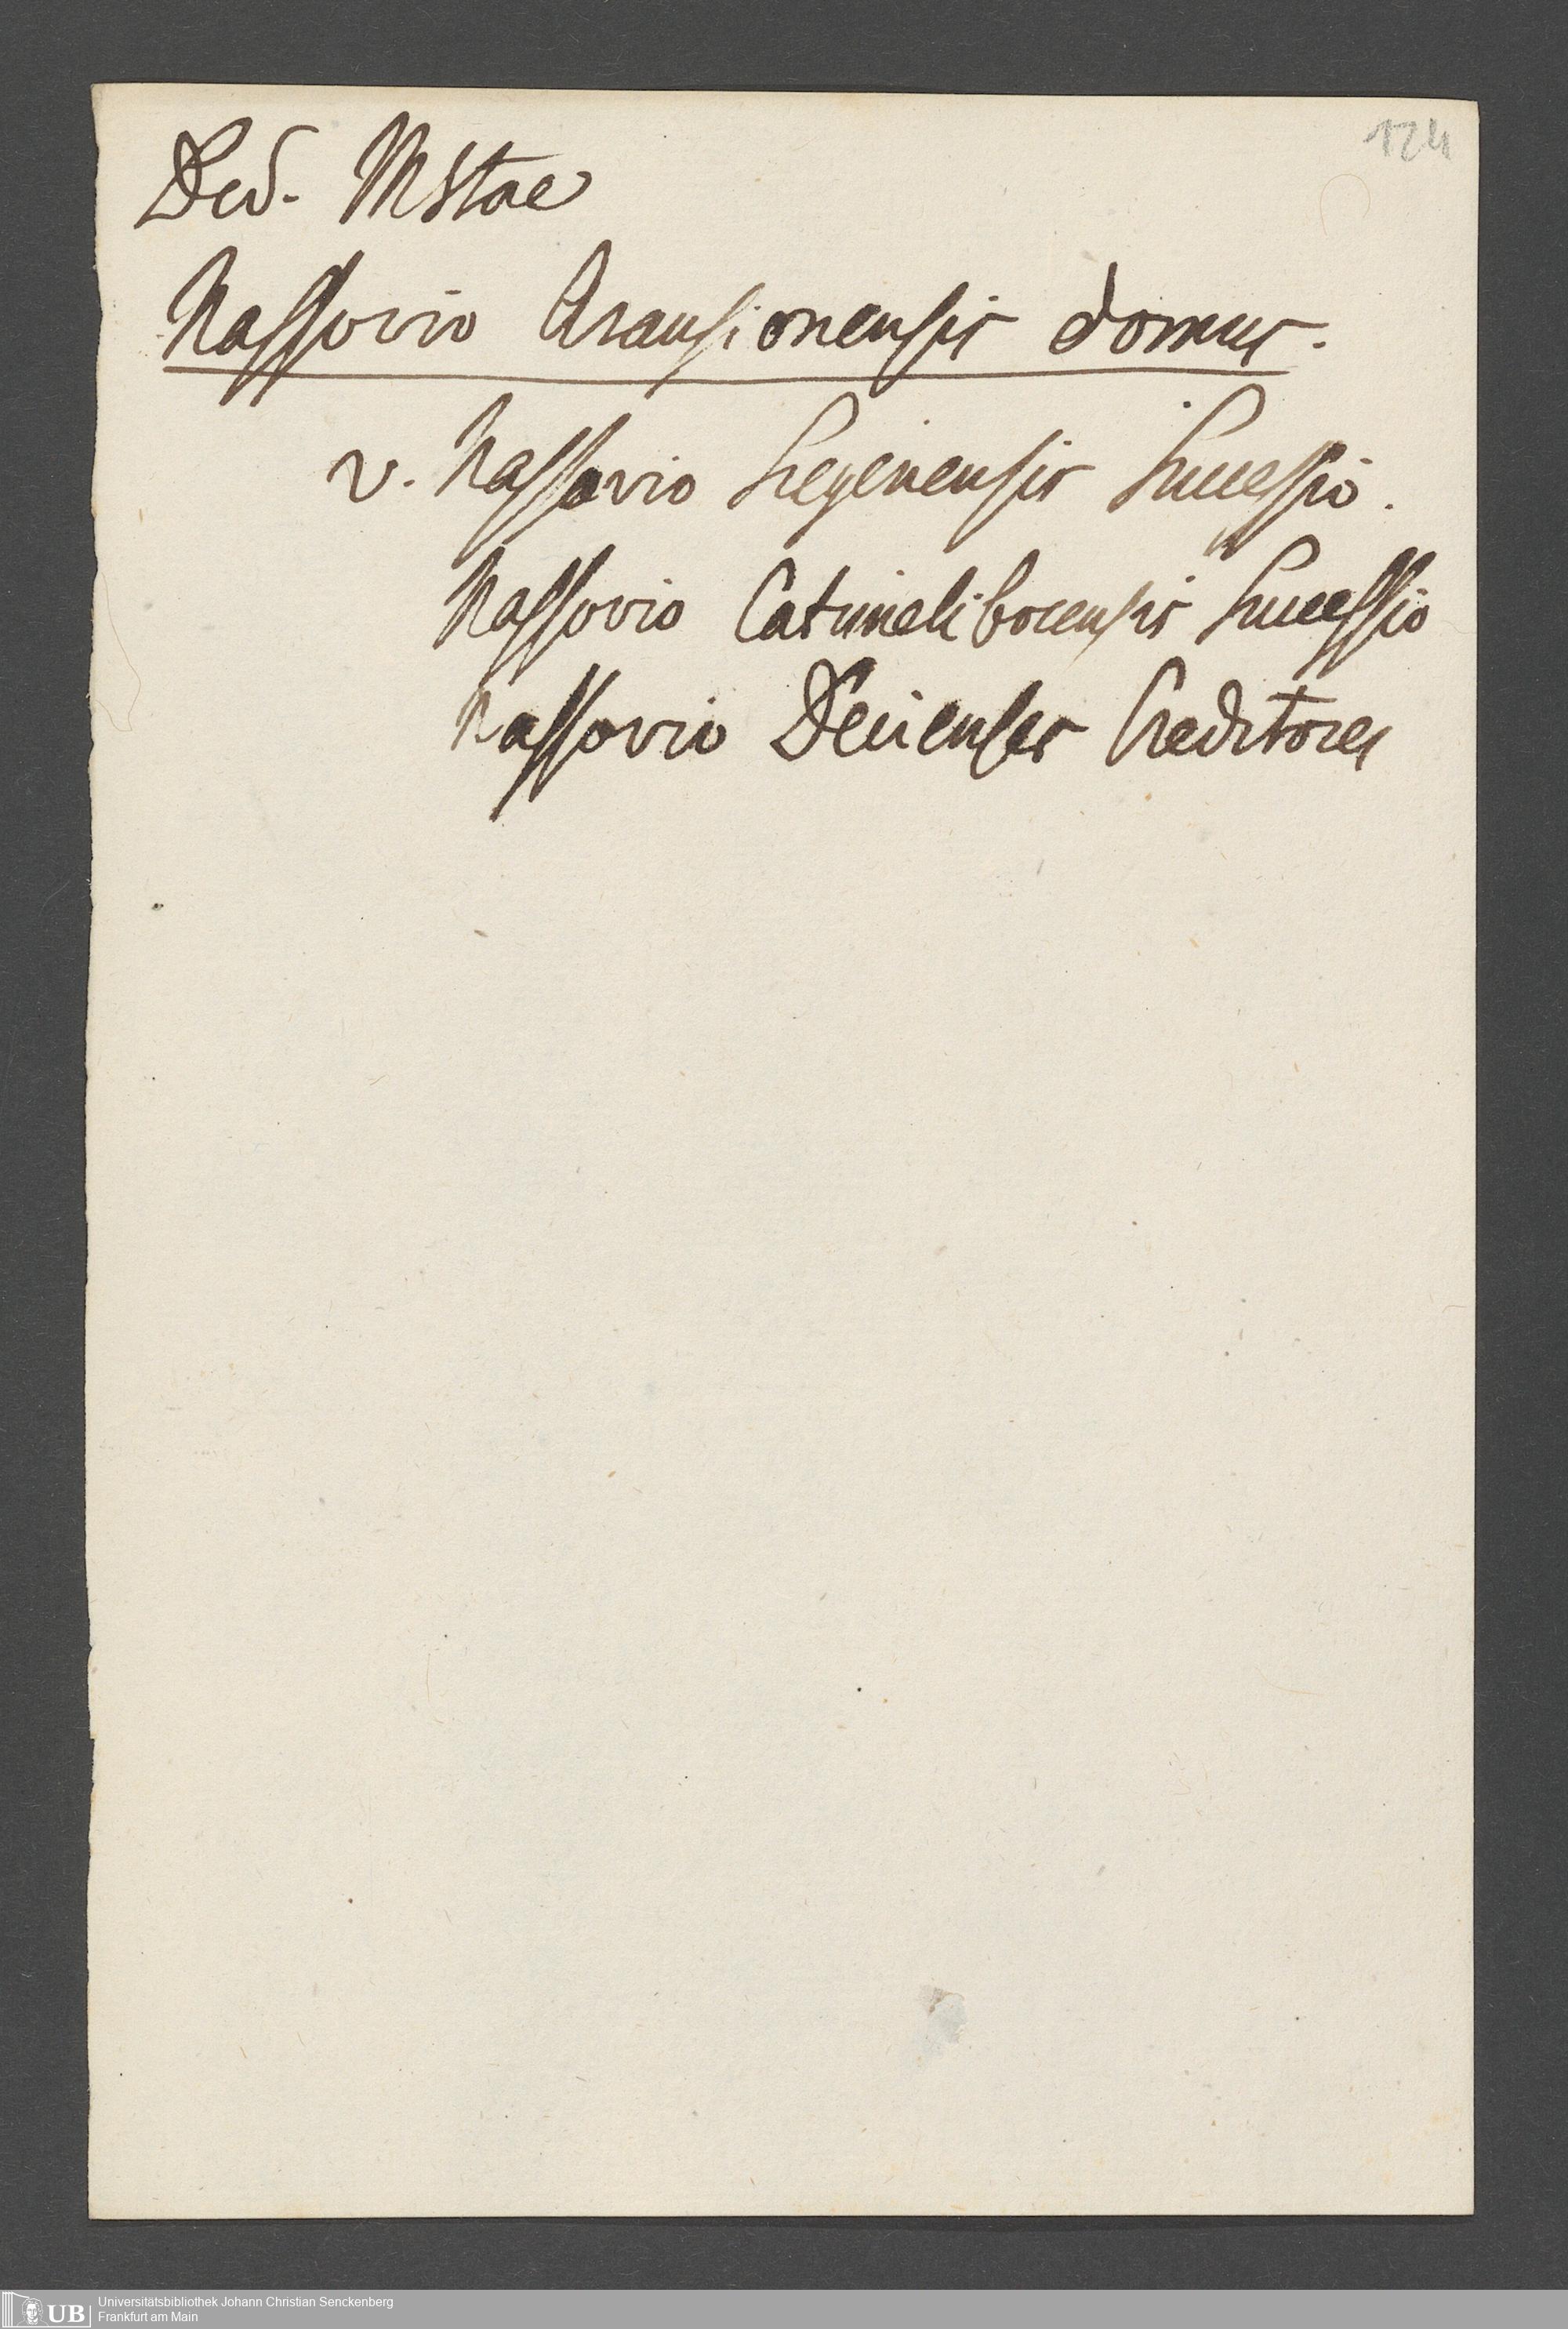 124
Ded. Mstae
Nassovio Arausionensis domus.
v. Nassovio Segenensis Successio.
Nassovio Catimelibocensis Successio
Nassovio Decienses Creditores
UB Universitätsbibliothek Johann Christian Senckenberg
Frankfurt am Main